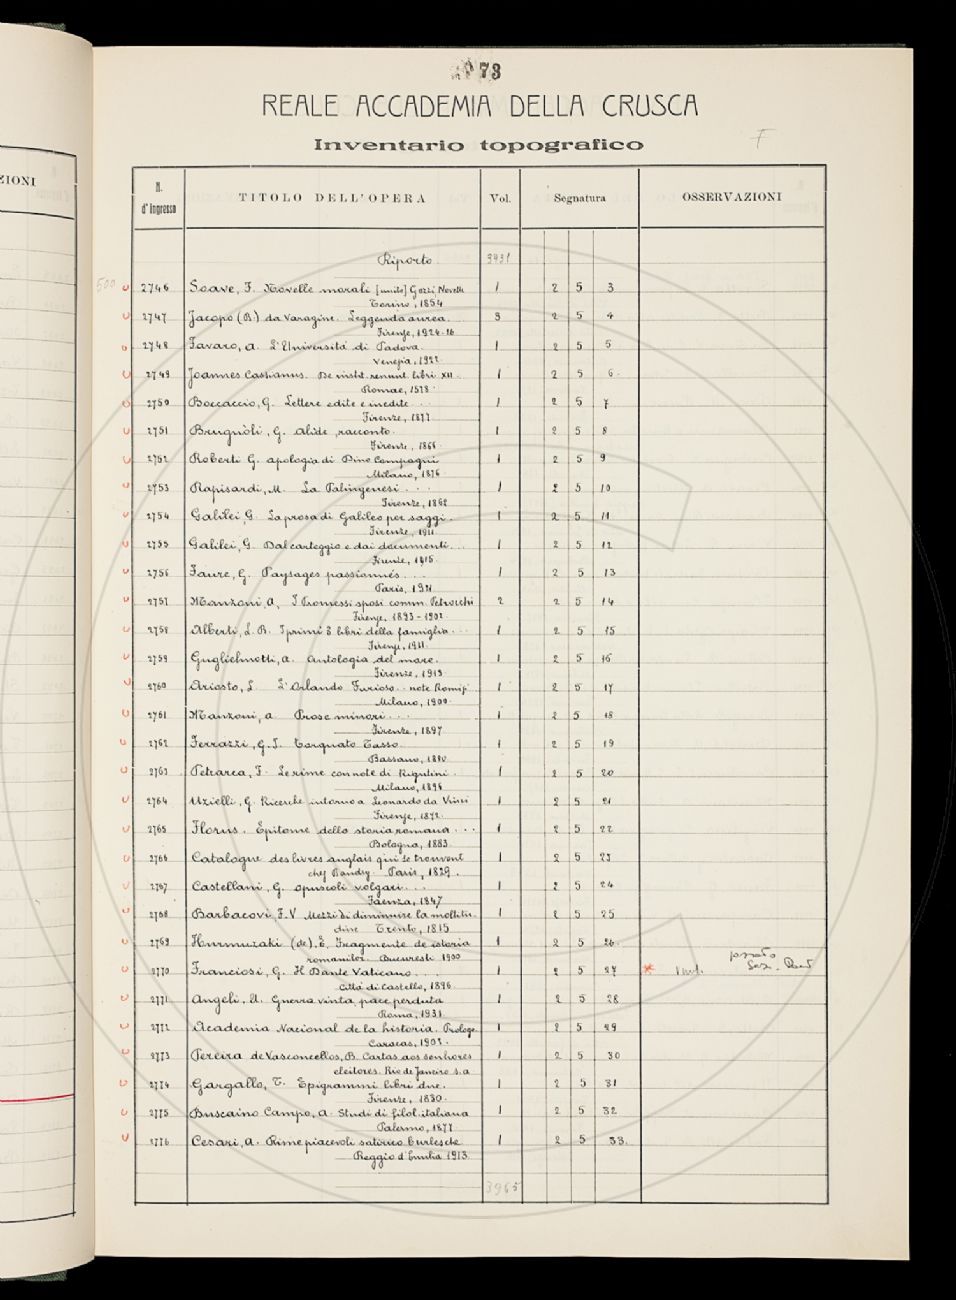 ZIONI
73
REALE ACCADEMIA DELLA CRUSCA
Inventario topografico
F
N. d'ingresso TITOLO DELL'OPERA Vol. Segnatura OSSERVAZIONI
Riporto 3931
500 2746 Soave, F. Novelle morali [unito] Gozzi, Novelle 1 2 5 3
Torino, 1854
2747 Jacopo (B.) da Varagine. Leggenda aurea. 3 2 5 4
Firenze, 1924-26
2748 Favaro, A. L'Università di Padova. 1 2 5 5
Venezia, 1922
2749 Joannes Cassianus. De instit. renunt. libri XII. 1 2 5 6.
Romae, 1578.
2750 Boccaccio, G. Lettere edite e inedite 1 2 5 7
Firenze, 1877
2751 Brugnòli, G. Alide, racconto. 1 2 5 8
Firenze, 1866
2752 Roberti G. Apologia di Dino Compagni 1 2 5 9
Milano, 1876
2753 Rapisardi, M. La Palingenesi . . . 1 2 5 10
Firenze, 1868
2754 Galilei, G. La prosa di Galileo per saggi. 1 2 5 11
Firenze, 1911
2755 Galilei, G. Dal carteggio e dai documenti . . 1 2 5 12
Firenze, 1915
2756 Faure, G. Paysages passionnés. . . . 1 2 5 13
Paris, 1921
2757 Manzoni, A. I Promessi sposi comm. Petrocchi 2 2 5 14
Firenze, 1893-1902
2758 Alberti, L. B. I primi 3 libri della famiglia . . . 1 2 5 15
Firenze, 1911.
2759 Guglielmotti, A. Antologia del mare. 1 2 5 16
Firenze, 1913
2760 Ariosto, L. L'Orlando Furioso. note Romizi 1 2 5 17
Milano, 1900.
2761 Manzoni, A. Prose minori . . . 1 2 5 18
Firenze, 1897
2762 Ferrazzi, G. J. Torquato Tasso. 1 2 5 19
Bassano, 1880
2763 Petrarca, F. Le rime con note di Rigutini. 1 2 5 20
Milano, 1896
2764 Uzielli, G. Ricerche intorno a Leonardo da Vinci 1 2 5 21
Firenze, 1872.
2765 Florus. Epitome della storia romana . . . 1 2 5 22
Bologna, 1883.
2766 Catalogue des livres anglais qui se trouvent 1 2 5 23
chez Baudry. Paris, 1829.
2767 Castellani, G. Opuscoli volgari. . . 1 2 5 24
Faenza, 1847
2768 Barbacovi, F. V. Mezzi di diminuire la moltitu- 1 2 5 25
dine Trento, 1815
2769 Hurmuzaki (de), E. Fragmente de istoria 1 2 5 26.
romanilor. Bucuresti 1900
2770 Franciosi, G. Il Dante Vaticano . . . 1 2 5 27
Città di Castello, 1896
2771 Angeli, U. Guerra vinta, pace perduta 1 2 5 28
Roma, 1931
2772 Academia Nacional de la historia. Prologo 1 2 5 29
Caracas, 1903.
2773 Pereira de Vasconcellos, B. Cartas aos senhores 1 2 5 30
eleitores. Rio de Janeiro s.a
2774 Gargallo, T. Epigrammi libri due. 1 2 5 31
Firenze, 1830.
2775 Buscaino Campo, A. Studi di filol. italiana 1 2 5 32
Palermo, 1877
2776 Cesari, A. Rime piacevoli satirico burlesche 1 2 5 33.
Reggio d'Emilia 1913
3965